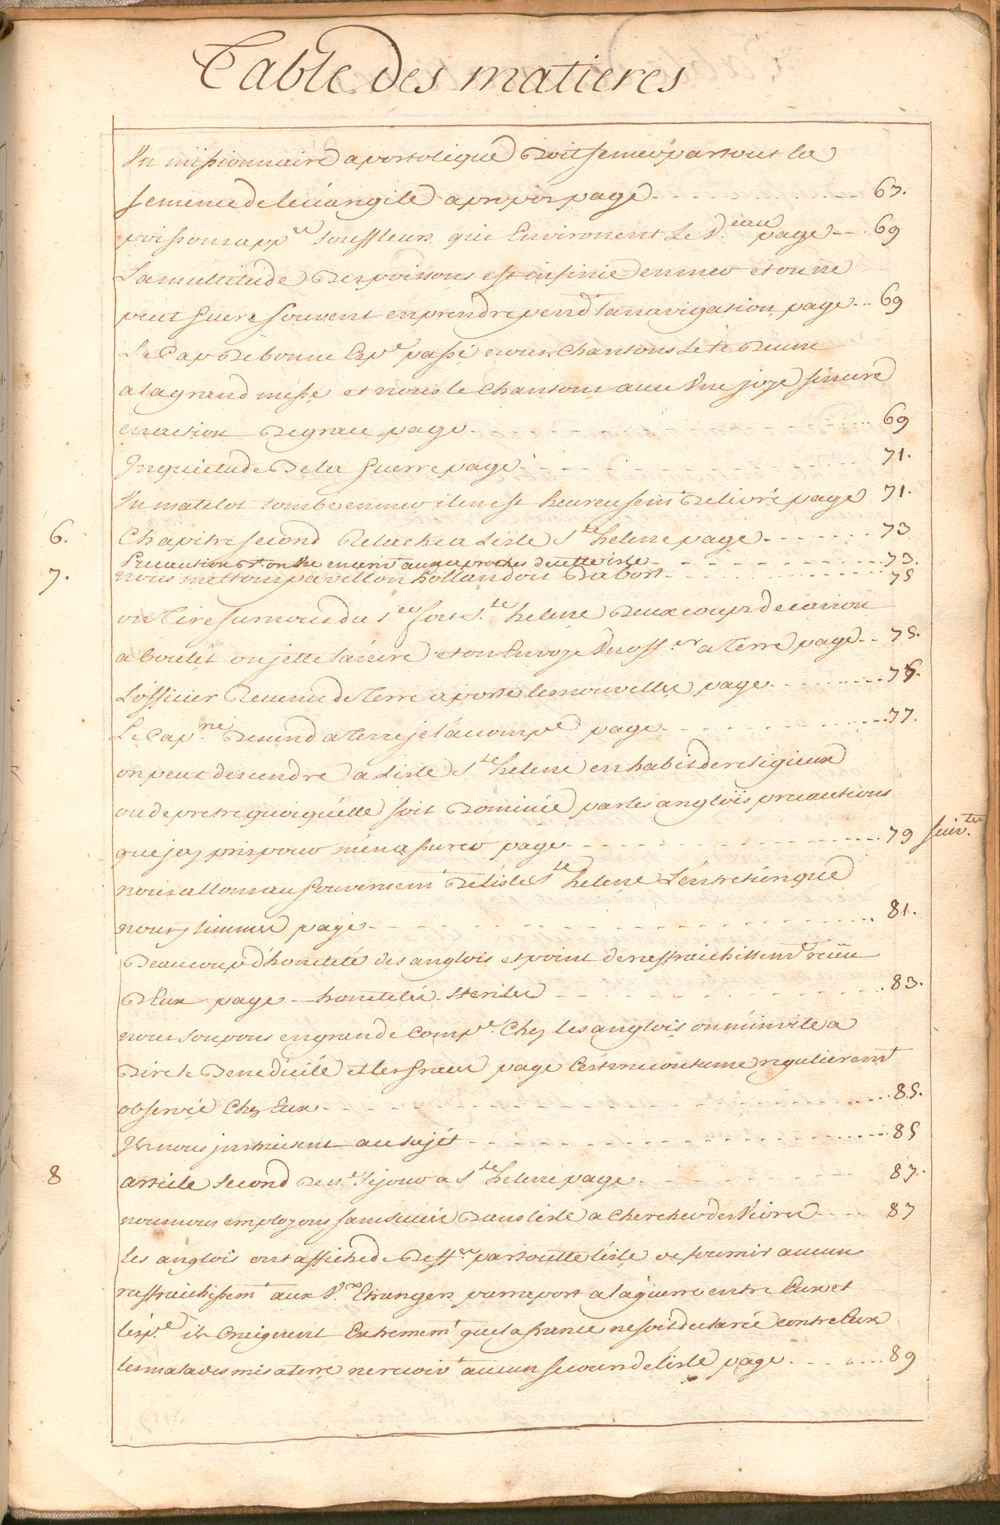 Table des matieres
Un missionnaire apostolique doit semer partout la
semence de leûangile apropos page 67.
poissons app.es souffleurs qui Environent Le V.eau page 69
La multitude des poissons est infinie en mer et on ne
peut guere souvent en prendre pend.t la navigation page 69
Le Cap de bonne Esp.e passé nous chantons Le te deum
a la grand messe et nous le chantons avec Une joye sincere
en action de grace page 69
Inquietude de la guerre page 71.
Un matelot tombe en mer il en est heureusem.t delivré page 71.
6. Chapitre second Relache a Lisle s.te helene page 73
Precautions q.t on doit aux aproches de cette isle 73.
7. nous mettons pavillon hollandois dabort 75
on Tire sur nous du fort s.te helene deux coups de canon
a boulét on jette l'ancre et on Envoye Un off.er a Terre page 75.
Lofficier Revenu de Terre aporte les nouvelles page 75.
Le Cap.ne descend a Terre je l'acomp.e page 77.
on peut descendre a Lisle s.te helene en habit de religieux
ou de pretre quoiquélle soit dominée par les anglois precautions
que jay pris pour m'en assurer page 79 suiv.tes
nous allons au gouvernem.t de lisle s.te helene L'entretien que
nous y tinmes page 81.
Beaucoup d'honeteté des anglois et point de raffraichissem.t
d'Eux page honeteté sterile 83.
nous soupons en grande comp.e Chez les anglois on m'invite a
dire le Benedicité et les graces page Cest une coutume regulierem.t
observée Chez Eux 85.
Ils nous instruisent au sujét 85
8 article second de n.e sejour a s.te helene page 87.
nous nous employons sans succés dans lisle a chercher des Vivres 87
les anglois ont affiché deff.ce par toutte l'isle de fournir aucun
raffraichissem.t aux V.x Etrangers par raport a la guerre entre Eux et
lesp.e ils Craignent Extremem.t que la france ne soit declarée contre Eux
les malades mis a terre ne recoiv.t aucun secours de l'isle page 89